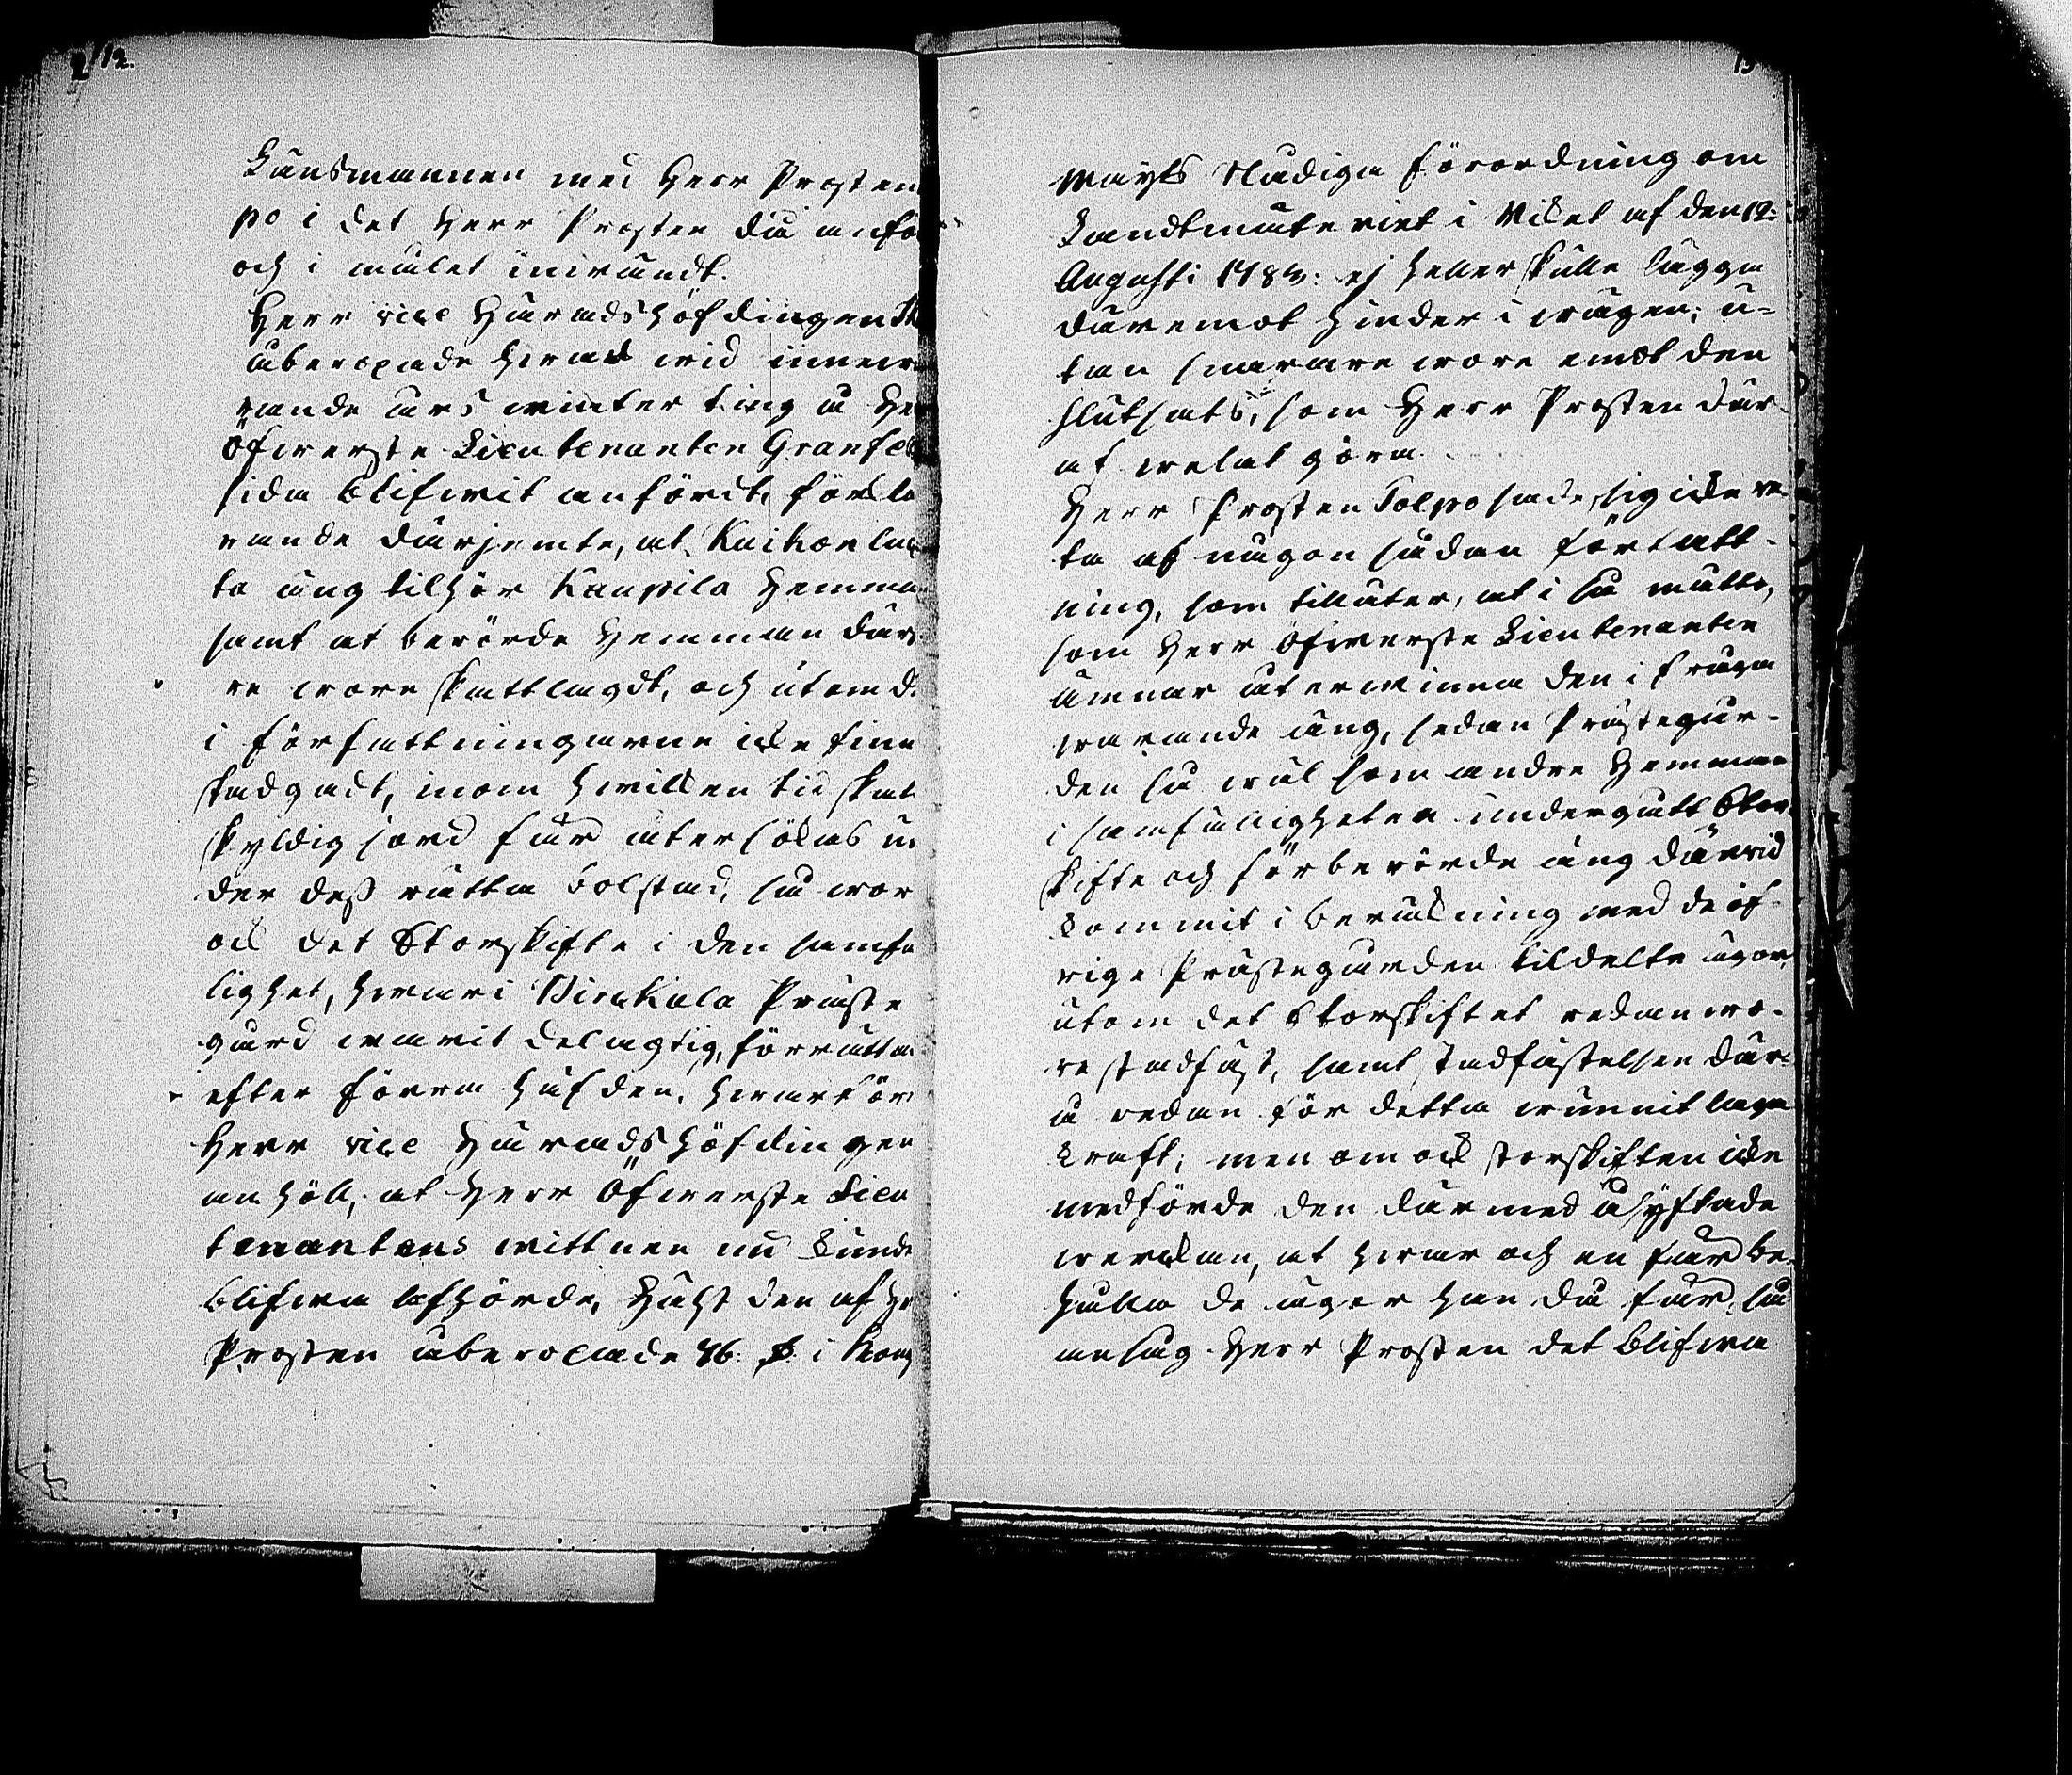 212.
Länsmannen med Herr Prosten
po i det Herr Prosten då anfö
och i målet inwändt.
Herr vice Häradshöfdingen
åberopade hwad wid innew
rande års winter ting å He
Öfwerste Lieutenanten Granfel
sida blifwit anfördt, förkla
rande därjemte, at Kaikonla
ta äng tilhör Kaupila Hemma
samt at berörde Hemman där
re wore skattlagdt, och utom d
i författningarne icke fins
stadgadt, inom hwilken tid skat
skyldig jord får återsökas u
der dess rätta bolstad, så wor
ock det Storskifte i den samfä
lighet, hwari Birckala Präste
gård warit delagtig, förrätta
efter förra häfden, hwarför
Herr vice Häradshöfdingen
anhöll, at Herr Öfwerste Lieu
tenantens wittnen nu kunde
blifwa afhörde, Hälst den af He
Prosten åberopade 46. §. i Kong
13
Mayts Nådiga förordning om
Landtmäteriet i Riket af den 12
Augusti 1783: ej heller skulle lägga
däremot hinder i wägen, u-
tan snarare wore emot den
slutsats, som Herr Prosten där
af welat göra.
Herr Prosten Polpo sade sig icke we-
ta af någon sådan författ-
ning, som tillåter, at i så måtto,
som Herr Öfwerste Lieutenanten
ämnar återwinna den i fråga
warande äng, sedan Prästegår-
den så wäl som andre Hemman
i samfälligheten undergått Stor
skifte och förberörde äng därwid
kommit i beräkning med de öf-
rige Prästegården tildelte ägor,
utom det Storskiftet redan wo-
re stadfäst, samt stadfästelsen där-
å redan för detta wunnit laga
kraft; men om ock storskiften icke
medförde den därmed åsyftade
werckan, at hwar och en får be-
hålla de ägor han då får, så
ansåg Herr Prosten det blifwa